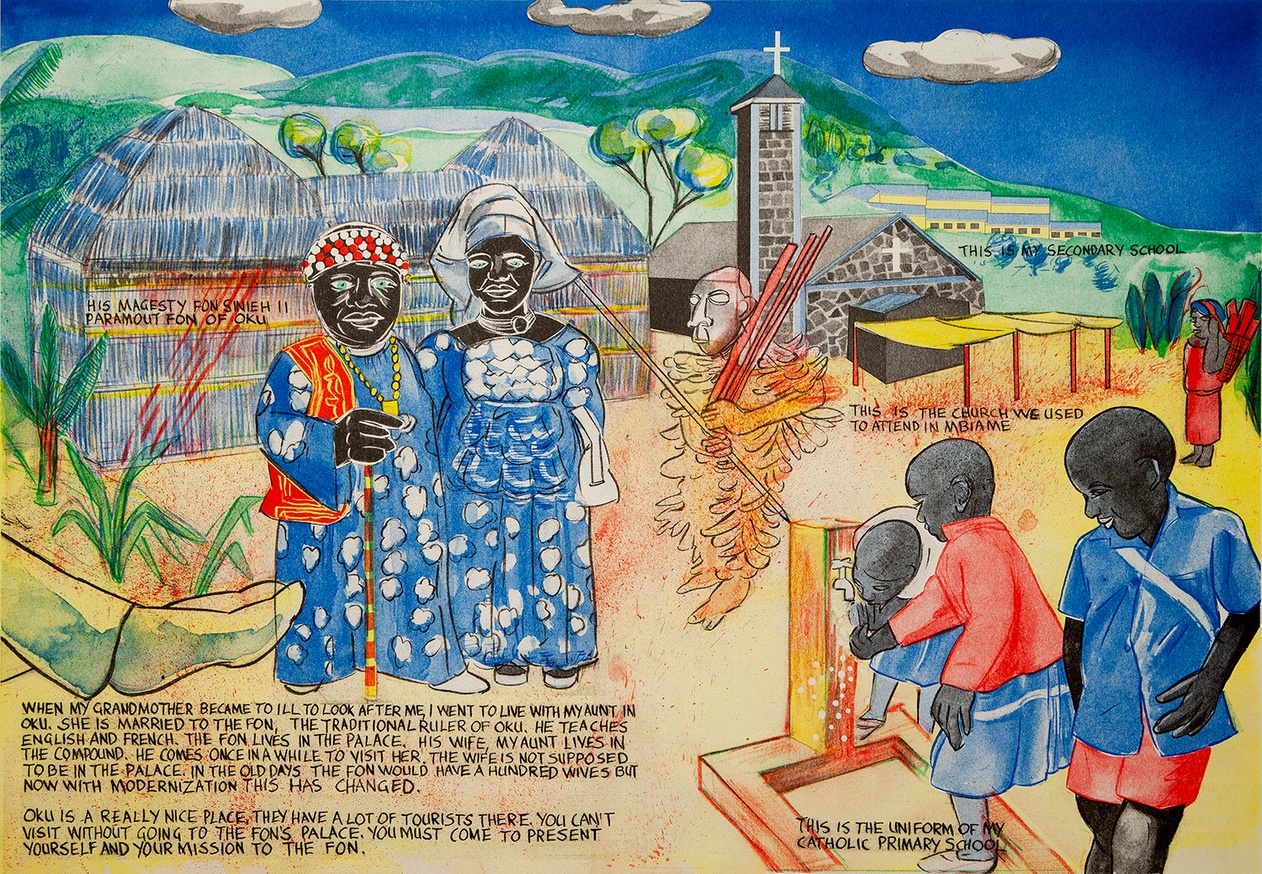 THIS IS MY SECONDARY SCHOOL
HIS MAGESTY FON SINIEH II
PARAMOUT FON OF OKU
THIS IS THE CHURCH WE USED
TO ATTEND IN MBIAME
WHEN MY GRANDMOTHER BECAME TO ILL TO LOOK AFTER ME, I WENT TO LIVE WITH MY AUNT IN
OKU. SHE IS MARRIED TO THE FON, THE TRADITIONAL RULER OF OKU. HE TEACHES
ENGLISH AND FRENCH. THE FON LIVES IN THE PALACE. HIS WIFE, MY AUNT LIVES IN
THE COMPOUND. HE COMES ONCE IN A WHILE TO VISIT HER, THE WIFE IS NOT SUPPOSED
TO BE IN THE PALACE. IN THE OLD DAYS THE FON WOULD HAVE A HUNDRED WIVES BUT
NOW WITH MODERNIZATION THIS HAS CHANGED.
OKU IS A REALLY NICE PLACE, THEY HAVE A LOT OF TOURISTS THERE. YOU CAN'T
VISIT WITHOUT GOING TO THE FON'S PALACE. YOU MUST COME TO PRESENT
YOURSELF AND YOUR MISSION TO THE FON.
THIS IS THE UNIFORM OF MY
CATHOLIC PRIMARY SCHOOL